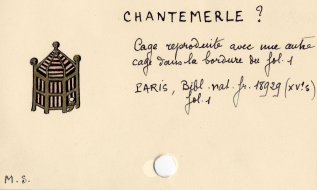 CHANTEMERLE ?
Cage reproduite avec une autre
cage dans la bordure du fol. 1
PARIS, Bibl. nat. fr. 18929 (XVe s)
fol. 1
M.S.